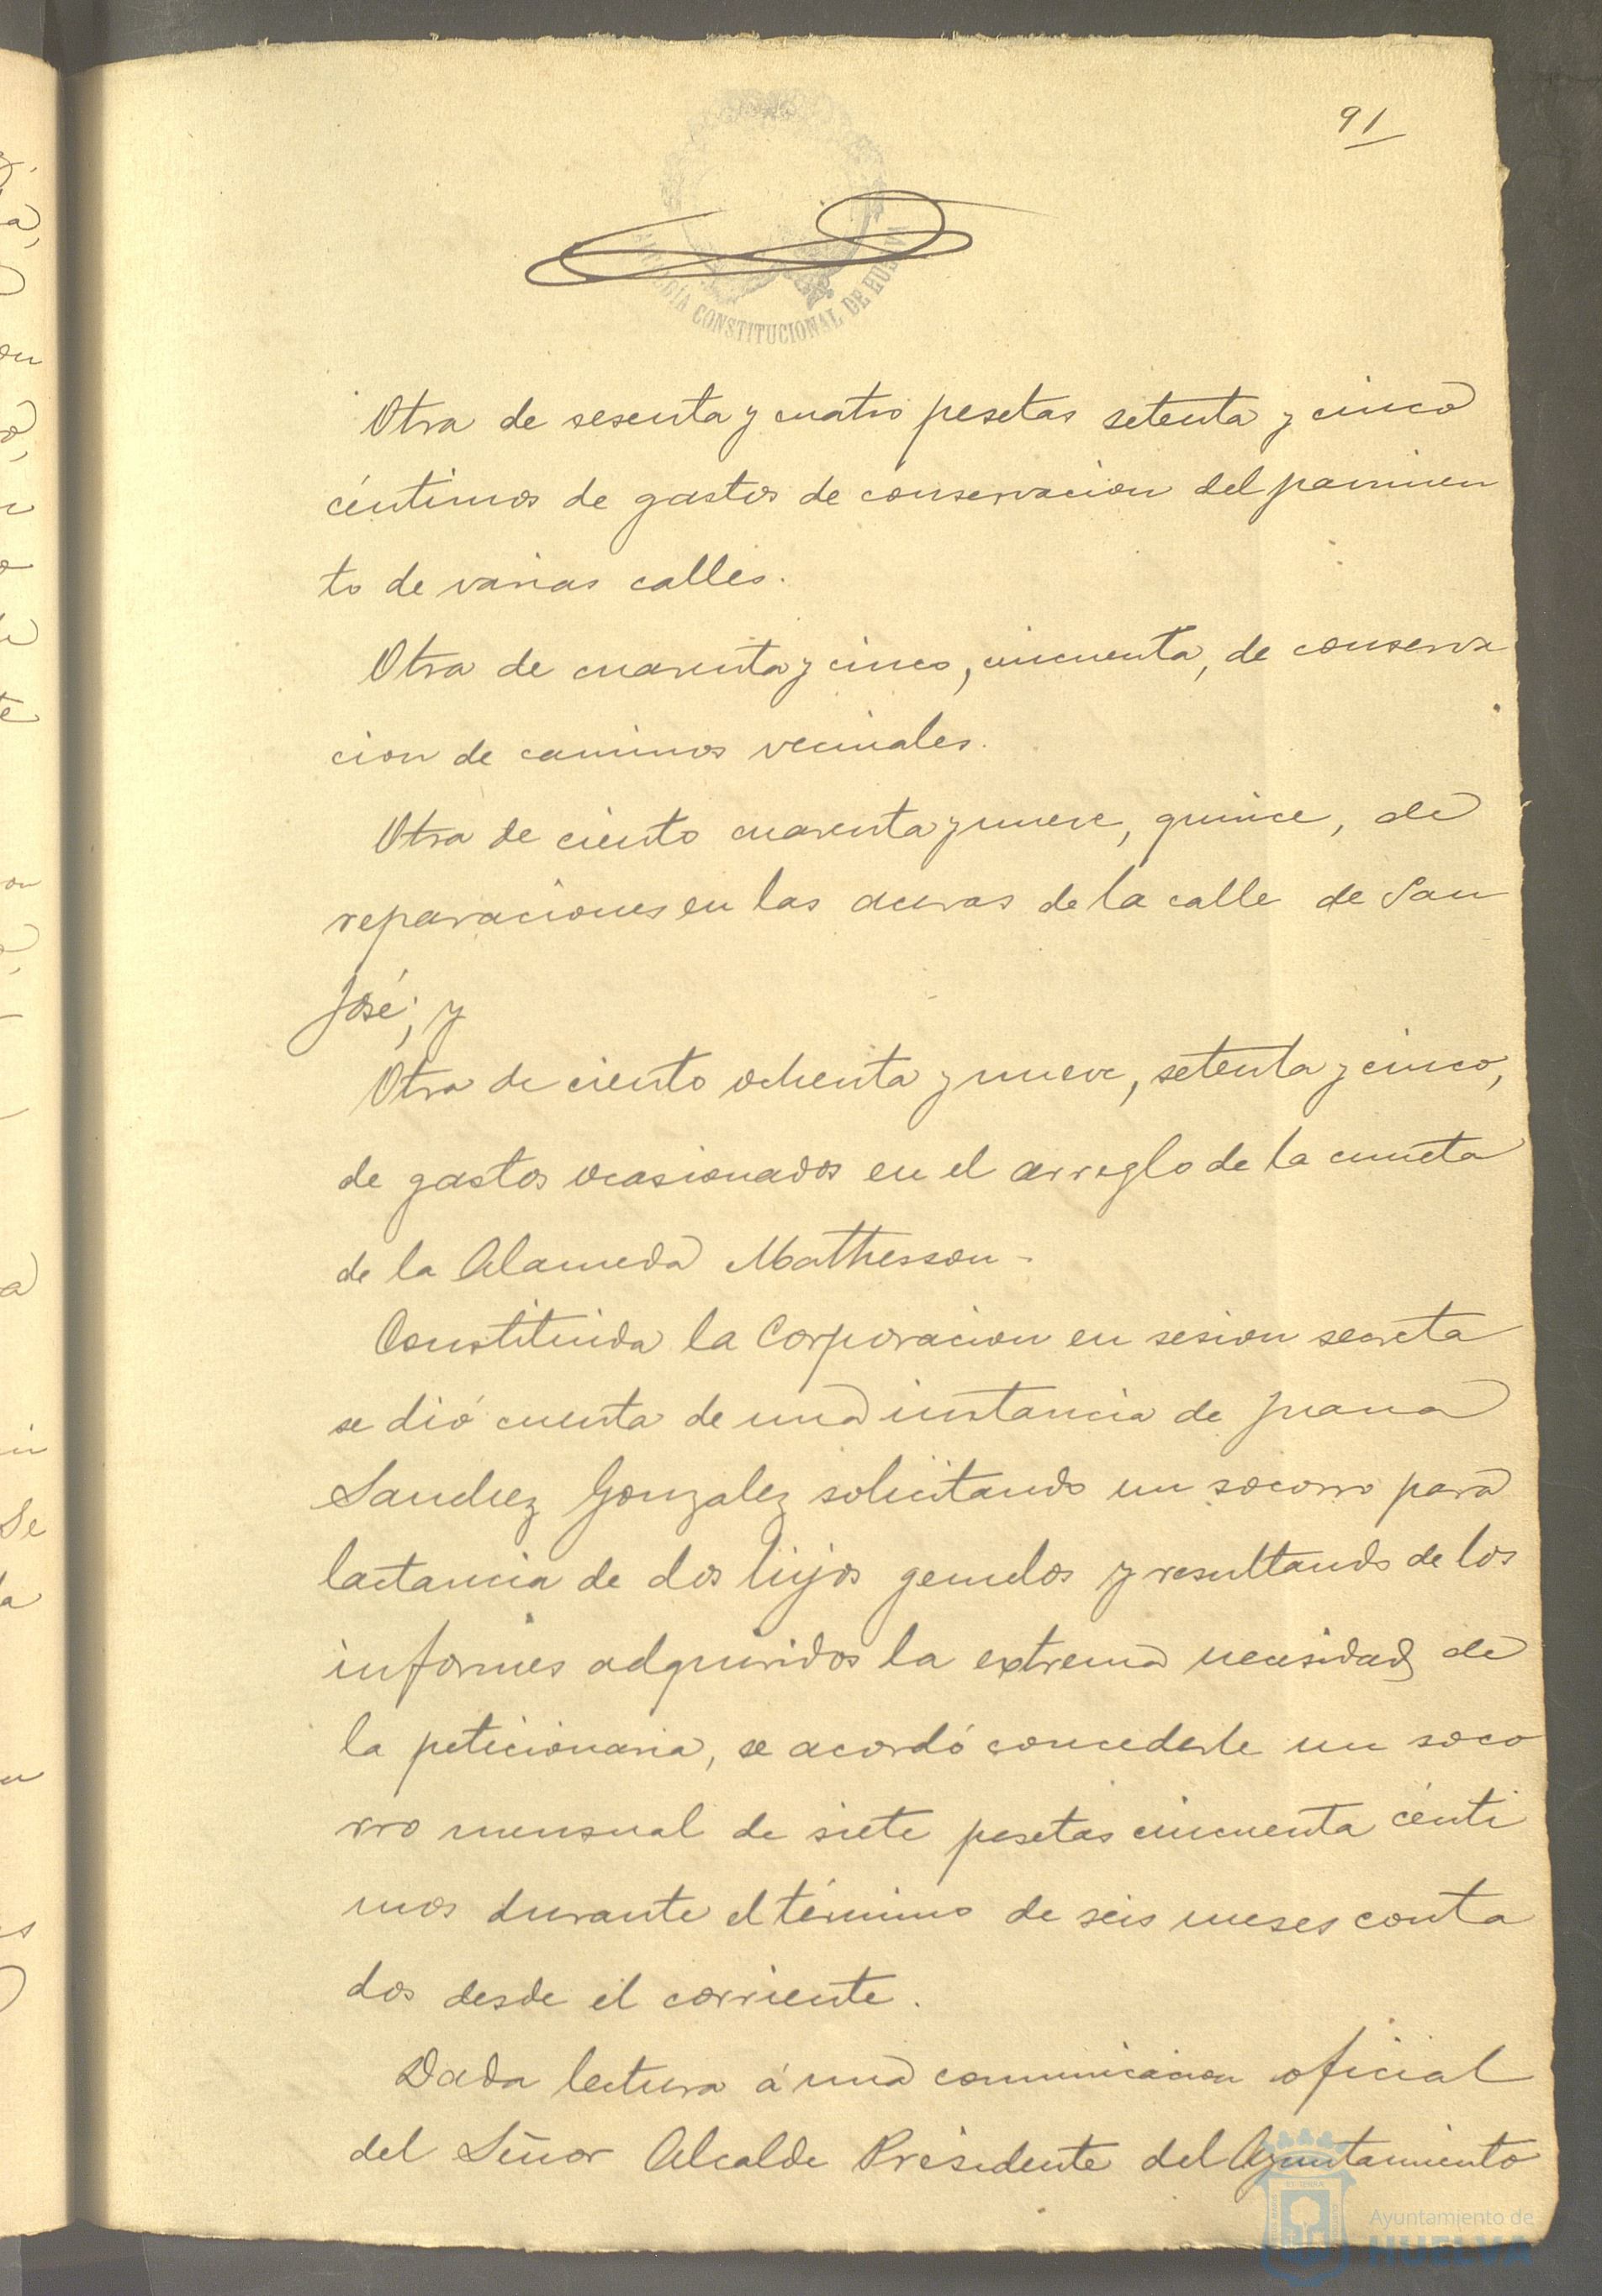 91
ALCALDÍA CONSTITUCIONAL DE HUELVA
Otra de sesenta y cuatro pesetas setenta y cinco
céntimos de gastos de conservacion del pavimen
to de varias calles.
Otra de cuarenta y cinco, cincuenta, de conserva
cion de caminos vecinales.
Otra de ciento cuarenta y nueve, quince, de
reparaciones en las aceras de la calle de San
José; y
Otra de ciento ochenta y nueve, setenta y cinco,
de gastos ocasionados en el arreglo de la cuneta
de la Alameda Mathesson.
Constituida la Corporacion en sesion secreta
se dió cuenta de una instancia de Juana
Sanchez Gonzalez solicitando un socorro para
lactancia de dos hijos gemelos y resultando de los
informes adquiridos la extrema necesidad de
la peticionaria, se acordó concederle un soco
rro mensual de siete pesetas cincuenta cénti
mos durante el término de seis meses conta
dos desde el corriente.
Dada lectura á una comunicacion oficial
del Señor Alcalde Presidente del Ayuntamiento
Ayuntamiento de
HUELVA